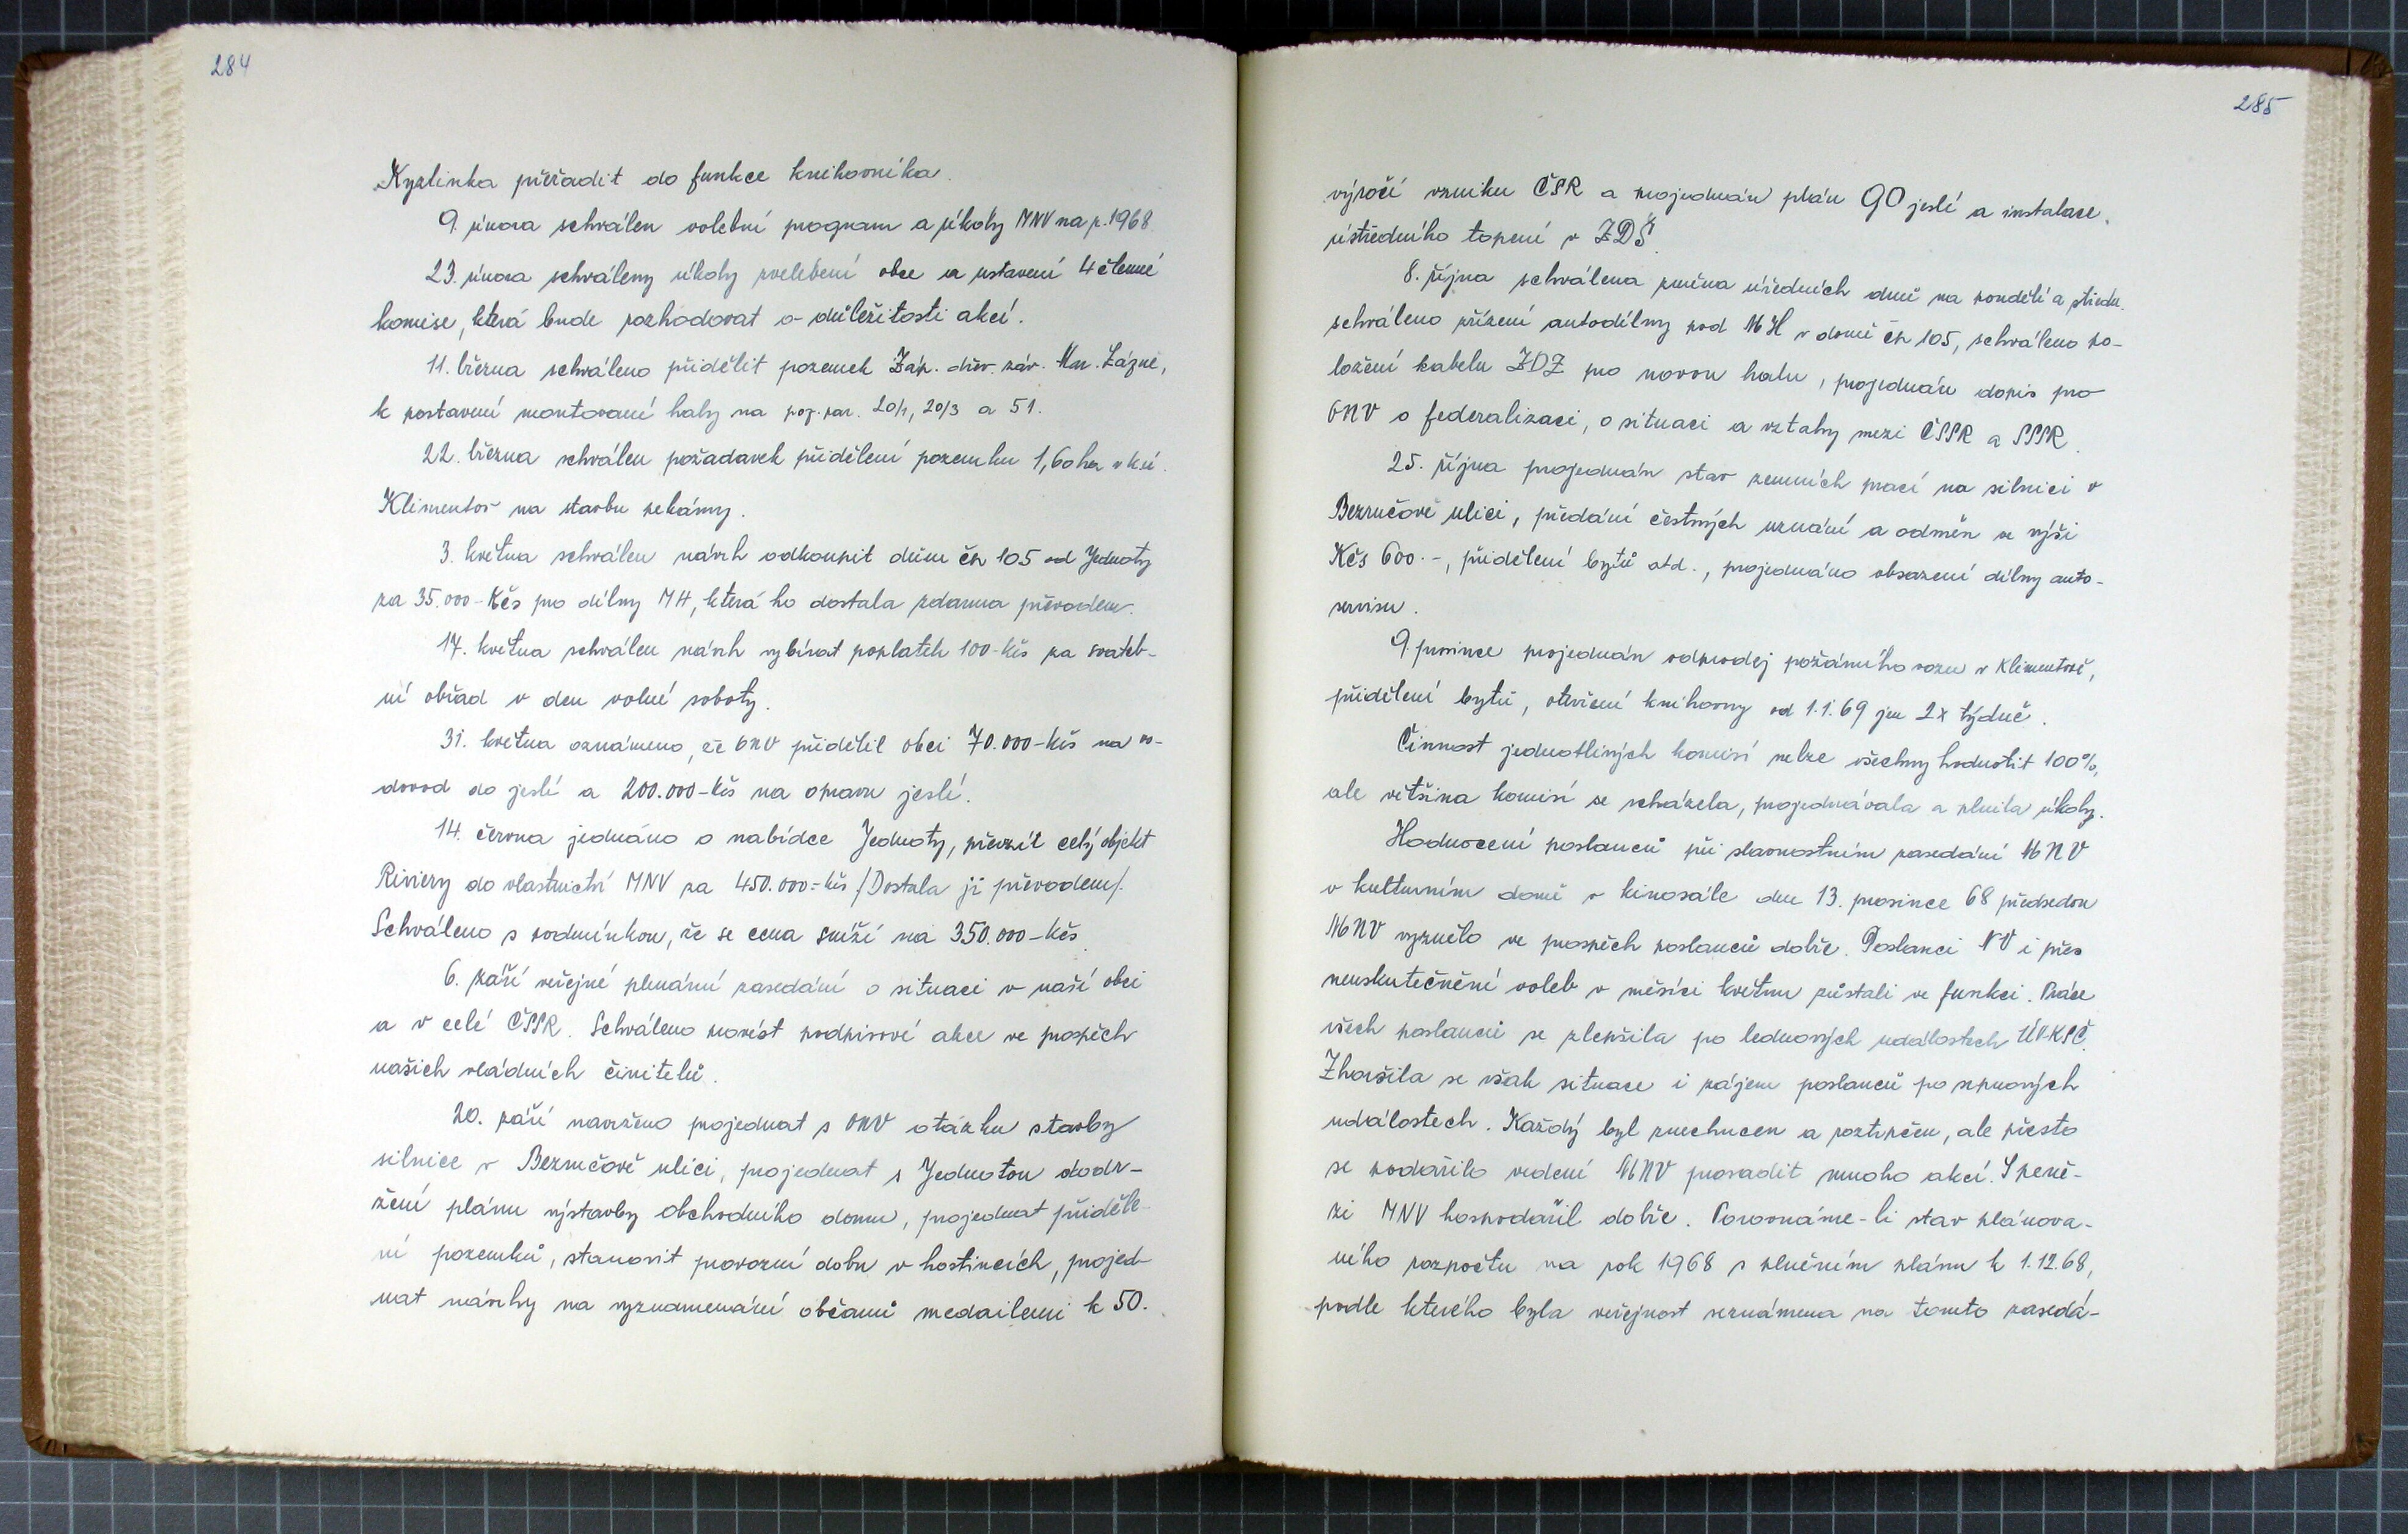 284
Kyzlinka přeřadit do funkce knihovníka.
9. února schválen volební program a úkoly MNV na r. 1968
23. února schváleny úkoly zvelebení obce a ustavení 4 členné
komise, která bude rozhodovat o důležitosti akcí.
11. března schváleno přidělit pozemek Záp. dřev. záv. Mar. Lázně,
k postavení montované haly na poz. par. 20/1, 20/3 a 51.
22. března schválen požadavek přidělení pozemku 1,60 ha v kú.
Klimentov na stavbu pekárny.
3. května schválen návrh odkoupit dům čp 105 od Jednoty
za 35.000-Kčs pro dílny MH, která ho dostala zdarma převodem.
17. května schválen návrh vybírat poplatek 100-Kčs za svateb-
ní obřad v den volné soboty.
31. května oznámeno, že ONV přidělil obci 70.000-Kčs na vo-
dovod do jeslí a 200.000-Kčs na opravu jeslí.
14. června jednáno o nabídce Jednoty, převzít celý objekt
Riviery do vlastnictví MNV za 450.000.-Kčs /Dostala ji převodem/.
Schváleno s podmínkou, že se cena sníží na 350.000-Kčs.
6. září veřejné plenární zasedání o situaci v naší obci
a v celé ČSSR. Schváleno provést podpisové akce ve prospěch
našich vládních činitelů.
20. září navrženo projednat s ONV otázku stavby
silnice v Bezručově ulici, projednat s Jednotou dodr-
žení plánu výstavby obchodního domu, projednat přiděle-
ní pozemků, stanovit provozní dobu v hostincích, projed-
nat návrhy na vyznamenání občanů medailemi k 50.
285
výročí vzniku ČSR a projednán plán GO jeslí a instalace
ústředního topení v ZDŠ.
8. října schválena změna úředních dnů na pondělí a středu.
schváleno zřízení autodílny pod MH v domě čp 105, schváleno po-
ložení kabelu ZDZ pro novou halu, projednán dopis pro
ONV o federalizaci, o situaci a vztahy mezi ČSSR a SSSR.
25. října projednán stav zemních prací na silnici v
Bezručově ulici, předání čestných uznání a odměn ve výši
Kčs 600.-, přidělení bytů atd., projednáno obsazení dílny auto-
servisu.
9. prosince projednán odprodej požárního vozu v Klimentově,
přidělení bytů, otevření knihovny od 1.1.69 jen 2x týdně.
Činnost jednotlivých komisí nelze všechny hodnotit 100%,
ale většina komisí se scházela, projednávala a plnila úkoly.
Hodnocení poslanců při slavnostním zasedání MNV
v kulturním domě v kinosále dne 13. prosince 68 předsedou
MNV vyznělo ve prospěch poslanců dobře. Poslanci NV i přes
neuskutečnění voleb v měsíci květnu zůstali ve funkci. Práce
všech poslanců se zlepšila po lednových událostech ÚV-KSČ.
Zhoršila se však situace i zájem poslanců po srpnových
událostech. Každý byl znechucen a roztrpčen, ale přesto
se podařilo vedení MNV prosadit mnoho akcí. S pení-
zi MNV hospodařil dobře. Porovnáme-li stav plánova-
ného rozpočtu na rok 1968 s plněním plánu k 1.12.68,
podle kterého byla veřejnost seznámena na tomto zasedá-